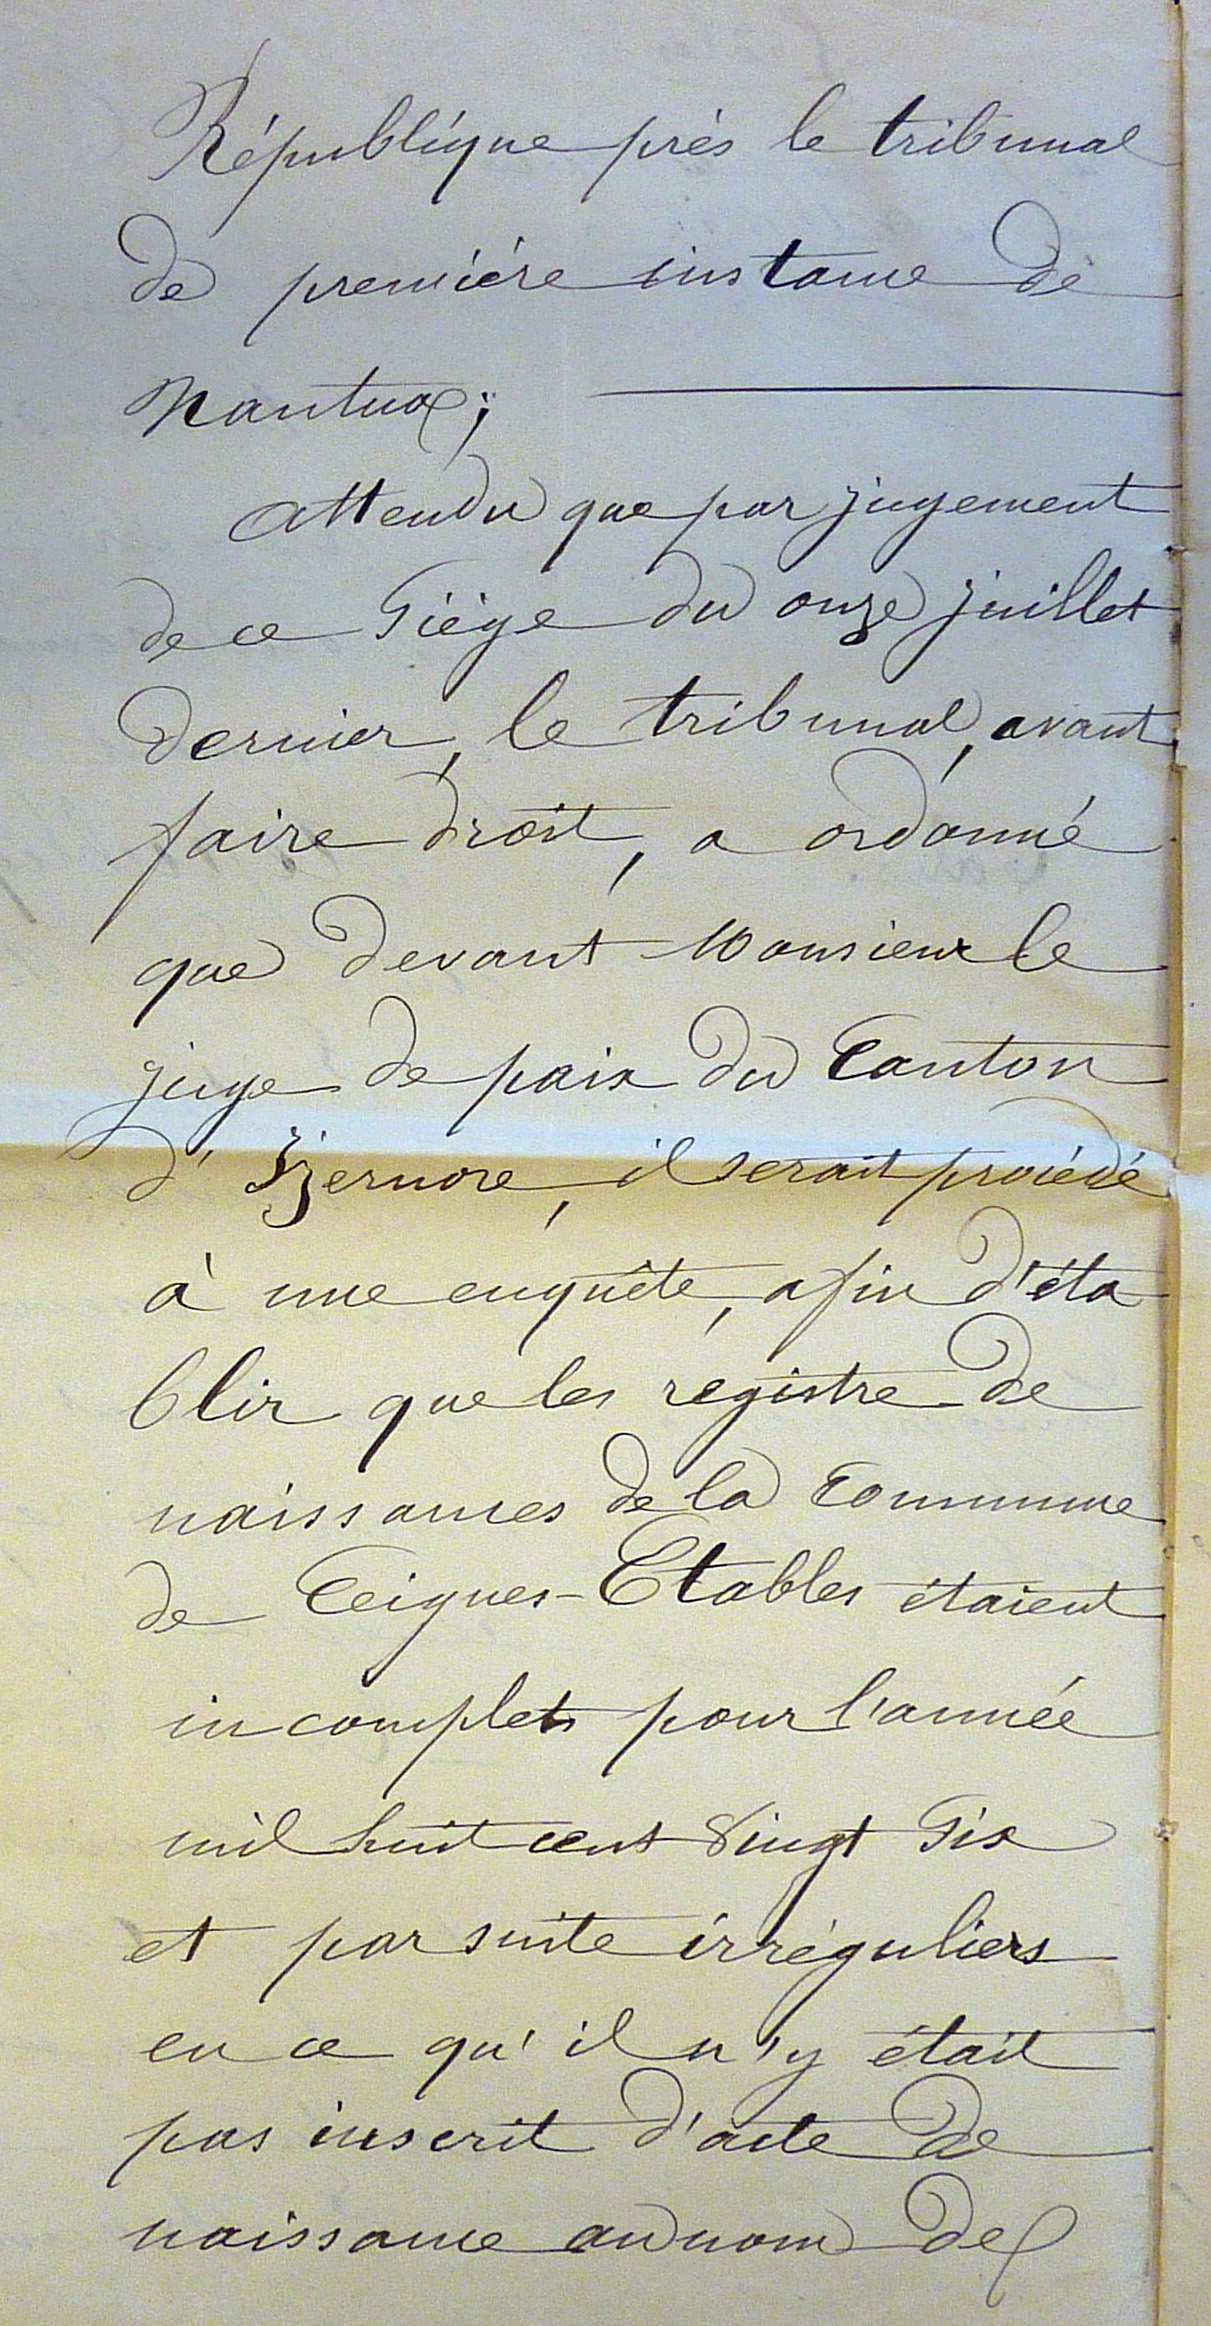 République près le tribunal
de première instance de
Nantua;
Attendu que par jugement
de ce Siège du onze juillet
dernier, le tribunal, avant
faire droit, a ordonné
que devant Monsieur le
juge de paix du Canton
d'Izernore, il serait procédé
à une enquête, afin d'éta
blir que les régistre de
naissances de la Commune
de Ceignes-Etables étaient
incomplets pour l'année
mil huit cent vingt Six
et par suite irréguliers
en ce qu'il n'y était
pas inscrit d'acte de
naissance au nom de